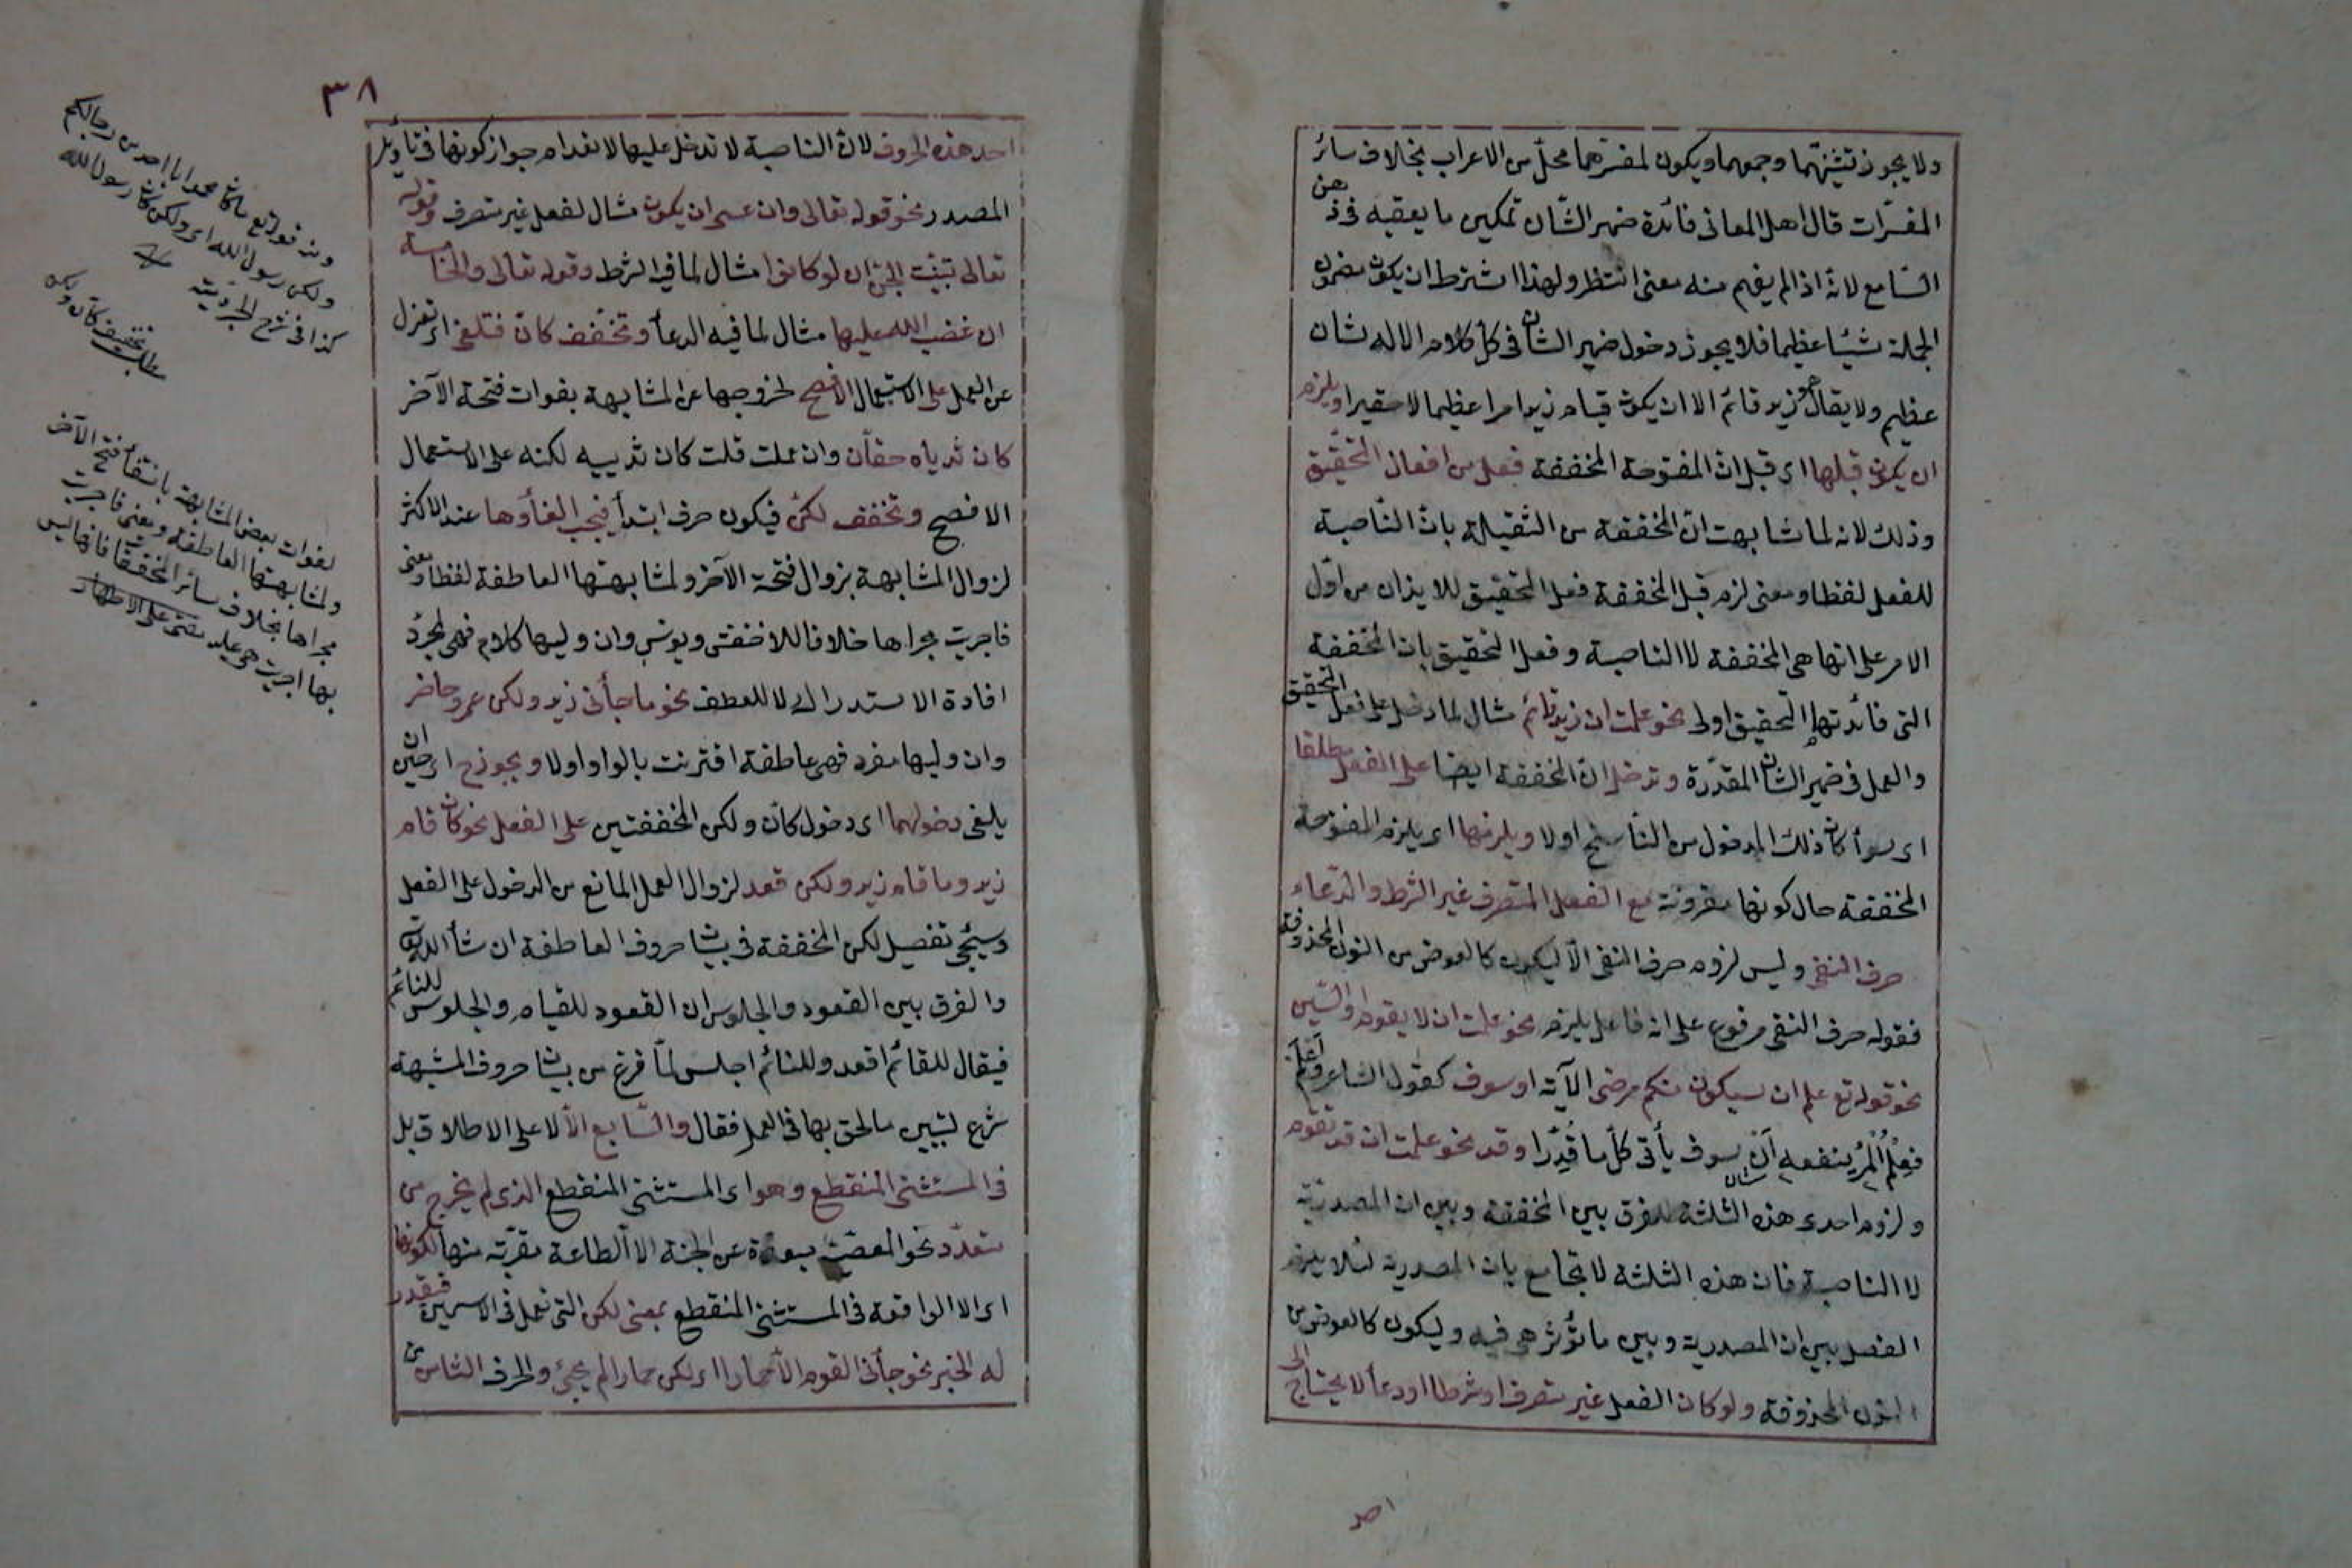 ولا يجوز تثنيتهما وجمعهما ويكون لمفسرهما محل من الاعراب بخلاف سائر
المفسرات قال اهل المعانى فائدة ضمير الشان تمكين ما يعقبه فى ذهن
السامع لانه اذا لم يفهم منه معنى انتظر ولهذا اشترط ان يكون مضمون
الجملة شيئا عظيما فلا يجوز دخول ضمير الشان فى كل كلام الا له شان
عظيم ولا يقال هو زيد قائم الا ان يكون قيام زيد امرا عظيما لا حقيرا ويلزم
ان يكون قبلها اى قبل ان المفتوحة المخففة فعل من افعال التحقيق
وذلك لانه لما شابهت ان المخففة من الثقيلة بان الناصبة
للفعل لفظا ومعنى لزم قبل المخففة فعل التحقيق للايذان من اول
الامر على انها هى المخففة لا الناصبة وفعل التحقيق بان المخففة
التى فائدتها التحقيق اولى نحو علمت ان زيد قائم مثال لما دخل على فعل التحقيق
والعمل فى ضمير الشان المقدرة وتدخل ان المخففة ايضا على الفعل مطلقا
اى سواء كان ذلك المدخول من النواسخ اولا ويلزمها اى يلزم المفتوحة
المخففة حال كونها مقرونة مع الفعل المتصرف غير الشرط والدعاء
حرف النفى وليس لزوم حرف النفى الا ليكون كالعوض من النون المحذوفة
فقوله حرف النفى مرفوع على انه فاعل يلزم نحو علمت ان لا يقوم او السين
نحو قوله تع علم ان سيكون منكم مرضى الآية او سوف كقول الشاعر واعلم
فعلم المرء ينفعه ان سوف يأتى كل ما قدرا وقد نحو علمت ان قد تقوم
ولزوم احدى هذه الثلثة للفرق بين المخففة وبين ان المصدرية
لا الناصبة فان هذه الثلثة لا تجامع بان المصدرية لئلا يلزم
الفصل بين ان المصدرية وبين ما تؤثر هى فيه وليكون كالعوض من
النون المحذوفة ولو كان الفعل غير متصرف او شرطا او دعاء لا يحتاج الى
احد
٣٨
احد هذه الحروف لان الناصبة لا تدخل عليها لانعدام جواز كونها فى تاويل
المصدر نحو قوله تعالى وان عسى ان يكون مثال لفعل غير متصرف وقوله
تعالى تبينت الجن ان لو كانوا مثال لما فيه الشرط وقوله تعالى والخامسة
ان غضب الله عليها مثال لما فيه الدعاء وتخفف كان فتلغى اى تعزل
عن العمل على الاستعمال الافصح لخروجها عن المشابهة بفوات فتحة الآخر
كان ثدياه حقان وان عملت قلت كان ثدييه لكنه على الاستعمال
الافصح وتخفف لكن فيكون حرف ابتداء فيجب الغاؤها عند الاكثر
لزوال المشابهة بزوال فتحة الآخر ولمشابهتها العاطفة لفظا ومعنى
فاجريت مجراها خلافا للاخفش ويونس وان وليها كلام فهى لمجرد
افادة الاستدراك لا للعطف نحو ما جاءنى زيد ولكن عمرو حاضر
وان وليها مفرد فهى عاطفة اقترنت بالواو اولا ويجوز ح اى حين ان
يلغى دخولهما اى دخول كان ولكن المخففتين على الفعل نحو كان قام
زيد وما قام زيد ولكن قعد لزوال العمل المانع من الدخول على الفعل
وسيجئ تفصيل لكن المخففة فى بيان حروف العاطفة ان شاء الله تع
والفرق بين القعود والجلوس ان القعود للقيام والجلوس للنائم
فيقال للقائم اقعد وللنائم اجلس لما فرغ من بيان حروف المشبهة
شرع لتبيين ما لحق بها فى العمل فقال والسابع الا لا على الاطلاق بل
فى المستثنى المنقطع وهو اى المستثنى المنقطع الذى لم يخرج من
متعدد نحو المعصية مبعدة عن الجنة الا الطاعة مقربة منها لكونها
اى الا الواقعة فى المستثنى المنقطع بمعنى لكن التى تعمل فى الاسمين فيقدر
له الخبر نحو جاءنى القوم الا حمارا اى لكن حمارا لم يجئ والحرف الثامن من
ومنه قوله تع ما كان محمد ابا احد من رجالكم
ولكن رسول الله اى ولكن كان رسول الله
كذا فى شرح
لفوات بعض المشابهة بانتفاء فتح الآخر
ولمشابهتها العاطفة ومعنى فاجريت
مجراها بخلاف سائر المخففات فانها ليس